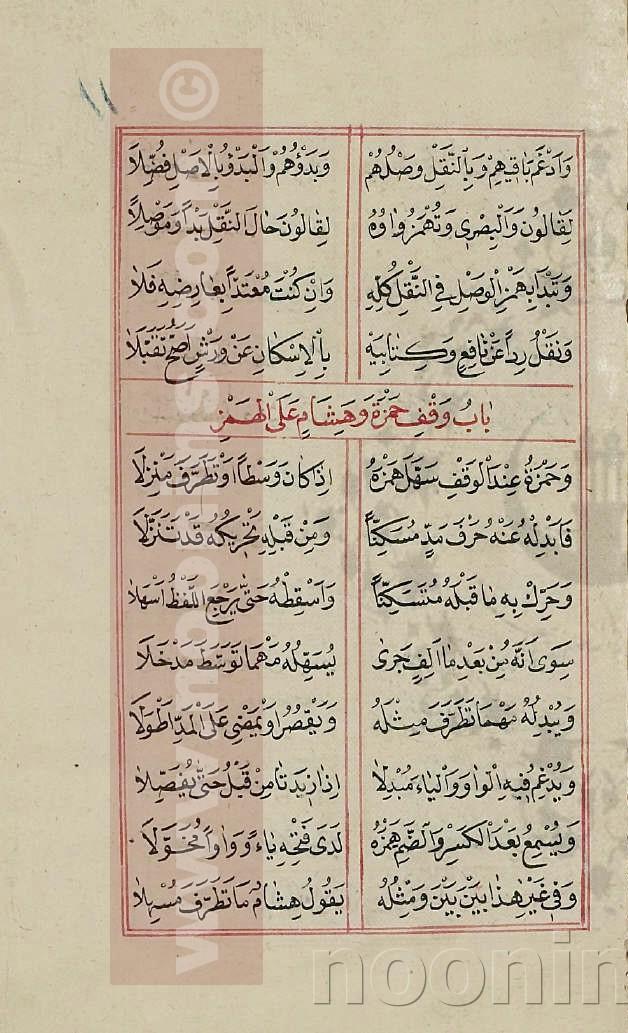 ١١
وَاَدْغَمَ بَاقِيهِمْ وَبِالنَّقْلِ وَصْلُهُمْ وَبَدْؤُهُمْ وَالْبَدْؤُ بِالْاَصْلِ فُضِّلَا
لِقَالُونَ وَالْبَصْرِى وَتُهْمَزُ وَاوُهُ لِقَالُونَ حَالَ النَّقْلِ بَدْأً وَمَوْصِلًا
وَتَبْدَا بِهَمْزِ الْوَصْلِ فِى النَّقْلِ كُلِّهِ وَاِنْ كُنْتَ مُعْتَدًّا بِعَارِضِهِ فَلَا
وَنَقْلُ رِدًا عَنْ نَافِعٍ وَكِتَابِيَهْ بِالْاِسْكَانِ عَنْ وَرْشٍ اَصَحُّ تَقَبُّلَا
بَابُ وَقْفِ حَمْزَةَ وَهِشَامٍ عَلَى الْهَمْزِ
وَحَمْزَةُ عِنْدَ الْوَقْفِ سَهَّلَ هَمْزَهُ اِذَا كَانَ وَسْطًا اَوْ تَطَرَّفَ مَنْزِلَا
فَاَبْدِلْهُ عَنْهُ حَرْفَ مَدٍّ مُسَكِّنًا وَمِنْ قَبْلِهِ تَحْرِيكُهُ قَدْ تَنَزَّلَا
وَحَرِّكْ بِهِ مَا قَبْلَهُ مُتَسَكِّنًا وَاَسْقِطْهُ حَتَّى يَرْجِعَ اللَّفْظُ اَسْهَلَا
سِوَى اَنَّهُ مِنْ بَعْدِ مَا اَلِفٍ جَرَى يُسَهِّلُهُ مَهْمَا تَوَسَّطَ مَدْخَلَا
وَيُبْدِلُهُ مَهْمَا تَطَرَّفَ مِثْلَهُ وَيَقْصُرُ اَوْ يَمْضِى عَلَى الْمَدِّ اَطْوَلَا
وَيُدْغِمُ فِيهِ الْوَاوَ وَالْيَاءَ مُبْدِلًا اِذَا زِيدَتَا مِنْ قَبْلُ حَتَّى يُفَصَّلَا
وَيُسْمِعُ بَعْدَ الْكَسْرِ وَالضَّمِّ هَمْزَهُ لَدَى فَتْحِهِ يَاءً وَوَاوًا مُحَوَّلَا
وَفِى غَيْرِ هٰذَا بَيْنَ بَيْنَ وَمِثْلُهُ يَقُولُ هِشَامٌ مَا تَطَرَّفَ مُسْهِلَا
noonin